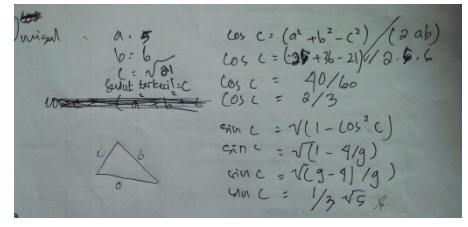 misal : a = 5
b = 6
c = √21
sudut terkecil = C
cos c = (a² + b² - c²) / (2 ab)
cos c = (25 + 36 - 21) // 2.5.6
cos c = 40/60
cos c = 2/3
sin c = √(1 - cos² c)
sin c = √(1 - 4/9)
sin c = √(9 - 4) /9)
sin c = 1/3 √5
c b
a